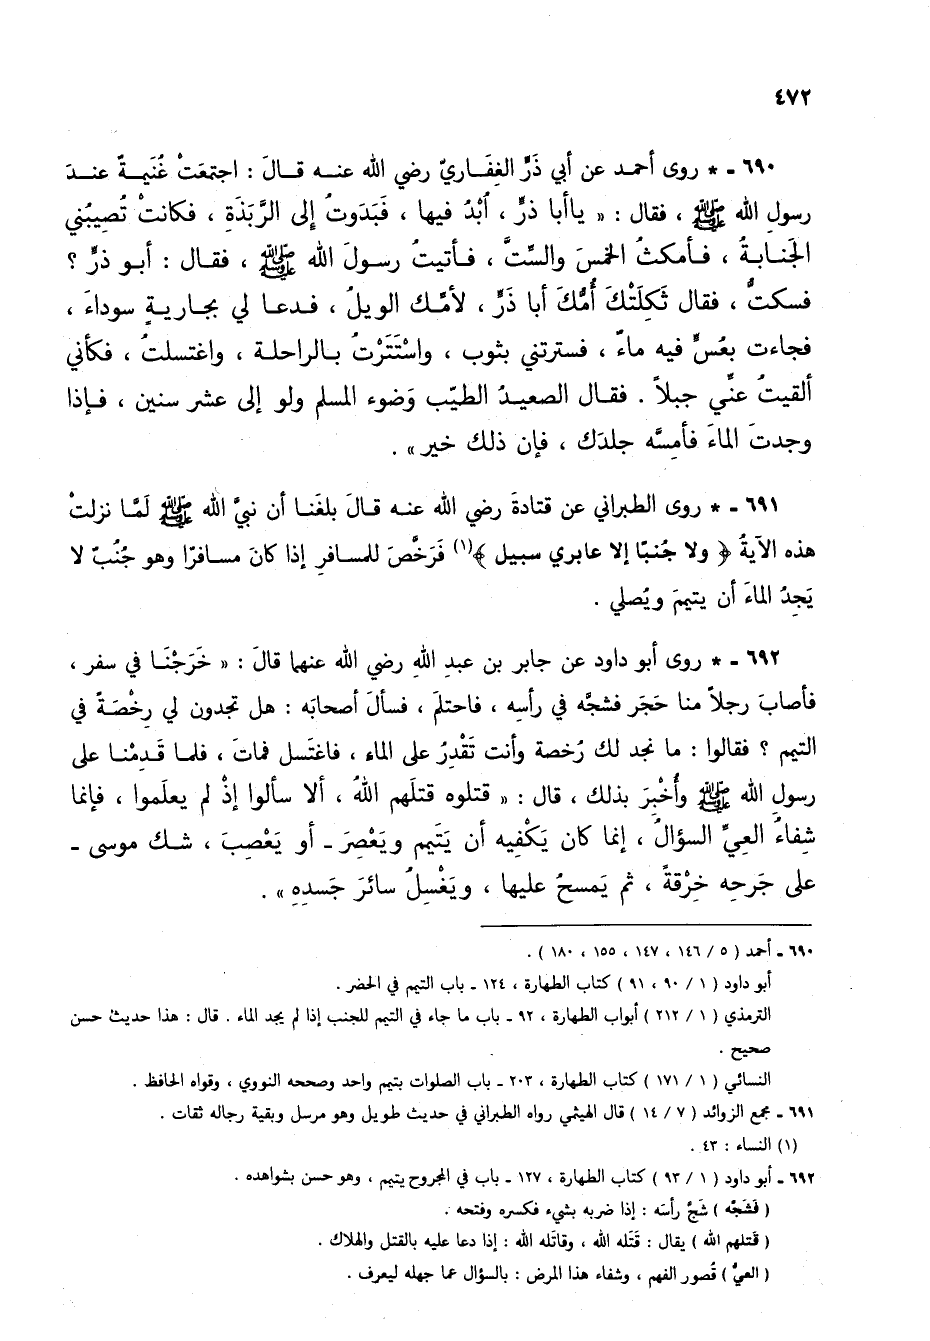 ٤٧٢
٦٩٠ ـ * روى أحمد عن أبي ذَرٍّ الغِفَاريّ رضي الله عنه قالَ : اجتمعَتْ غُنَيمةٌ عندَ
رسولِ الله ﷺ ، فقال : « ياأبا ذرٍّ ، اُبْدُ فيها ، فَبَدَوتُ إلى الرَّبَذَةِ ، فكانتْ تُصيبُني
الجَنابةُ ، فأمكثُ الخمسَ والسِّتَّ ، فأتيتُ رسولَ الله ﷺ ، فقال : أبو ذرٍّ ؟
فسكتُّ ، فقال ثَكِلَتْكَ أُمُّكَ أبا ذَرٍّ ، لأمِّك الويلُ ، فدعا لي بجاريةٍ سوداءَ ،
فجاءت بعُسٍّ فيه ماءٌ ، فسترتني بثوب ، واسْتَتَرْتُ بالراحلة ، واغتسلتُ ، فكأني
ألقيتُ عنِّي جبلاً . فقال الصعيدُ الطيّب وَضوء المسلم ولو إلى عشر سنين ، فإذا
وجدتَ الماءَ فأمِسَّه جلدَك ، فإن ذلك خير » .
٦٩١ ـ * روى الطبراني عن قتادةَ رضي الله عنه قالَ بلغَنا أن نبيَّ الله ﷺ لَمَّا نزلتْ
هذه الآيةُ ﴿ ولا جُنبًا إلا عابري سبيل ﴾(١) فَرَخَّصَ للمسافرِ إذا كانَ مسافرًا وهو جُنُبٌ لا
يَجِدُ الماءَ أن يتيمَ ويُصلي .
٦٩٢ ـ * روى أبو داود عن جابر بن عبدِ اللهِ رضي الله عنهما قالَ : « خَرَجْنَا في سفر ،
فأصابَ رجلاً منا حَجَر فشجَّه في رأسِه ، فاحتلمَ ، فسألَ أصحابَه : هل تجدون لي رخْصَةً في
التيم ؟ فقالوا : ما نجد لك رُخصة وأنت تَقْدِرُ على الماء ، فاغتَسل فماتَ ، فلما قدِمْنا على
رسولِ الله ﷺ وأُخْبِرَ بذلك ، قال : « قتلوه قتلَهم اللهُ ، ألا سألوا إذْ لم يعلَموا ، فإنما
شِفاءُ العِيِّ السؤالُ ، إنما كان يَكْفِيه أن يَتَيم ويَعْصِرَ ـ أو يَعْصِبَ ، شك موسى ـ
على جَرحِه خِرْقةً ، ثم يَمسحُ عليها ، ويَغْسِلُ سائرَ جَسدِهِ » .
٦٩٠ ـ أحمد ( ٥ / ١٤٦ ، ١٤٧ ، ١٥٥ ، ١٨٠ ) .
أبو داود ( ١ / ٩٠ ، ٩١ ) كتاب الطهارة ، ١٢٤ ـ باب التيم في الحضر .
الترمذي ( ١ / ٢١٢ ) أبواب الطهارة ، ٩٢ ـ باب ما جاء في التيم للجنب إذا لم يجد الماء . قال : هذا حديث حسن
صحيح .
النسائي ( ١ / ١٧١ ) كتاب الطهارة ، ٢٠٣ ـ باب الصلوات بتيم واحد وصححه النووي ، وقواه الحافظ .
٦٩١ ـ مجمع الزوائد ( ٧ / ١٤ ) قال الهيثمي رواه الطبراني في حديث طويل وهو مرسل وبقية رجاله ثقات .
(١) النساء : ٤٣ .
٦٩٢ ـ أبو داود ( ١ / ٩٣ ) كتاب الطهارة ، ١٢٧ ـ باب في المجروح يتيم ، وهو حسن بشواهده .
( فَشَجَّه ) شَجَّ رأسَه : إذا ضربه بشيء فكسره وفتحه .
( قَتلهم الله ) يقال : قَتَله الله ، وقاتَله الله : إذا دعا عليه بالقتل والهلاك .
( العيُّ ) قُصور الفهم ، وشفاء هذا المرض : بالسؤال عما جهله ليعرف .